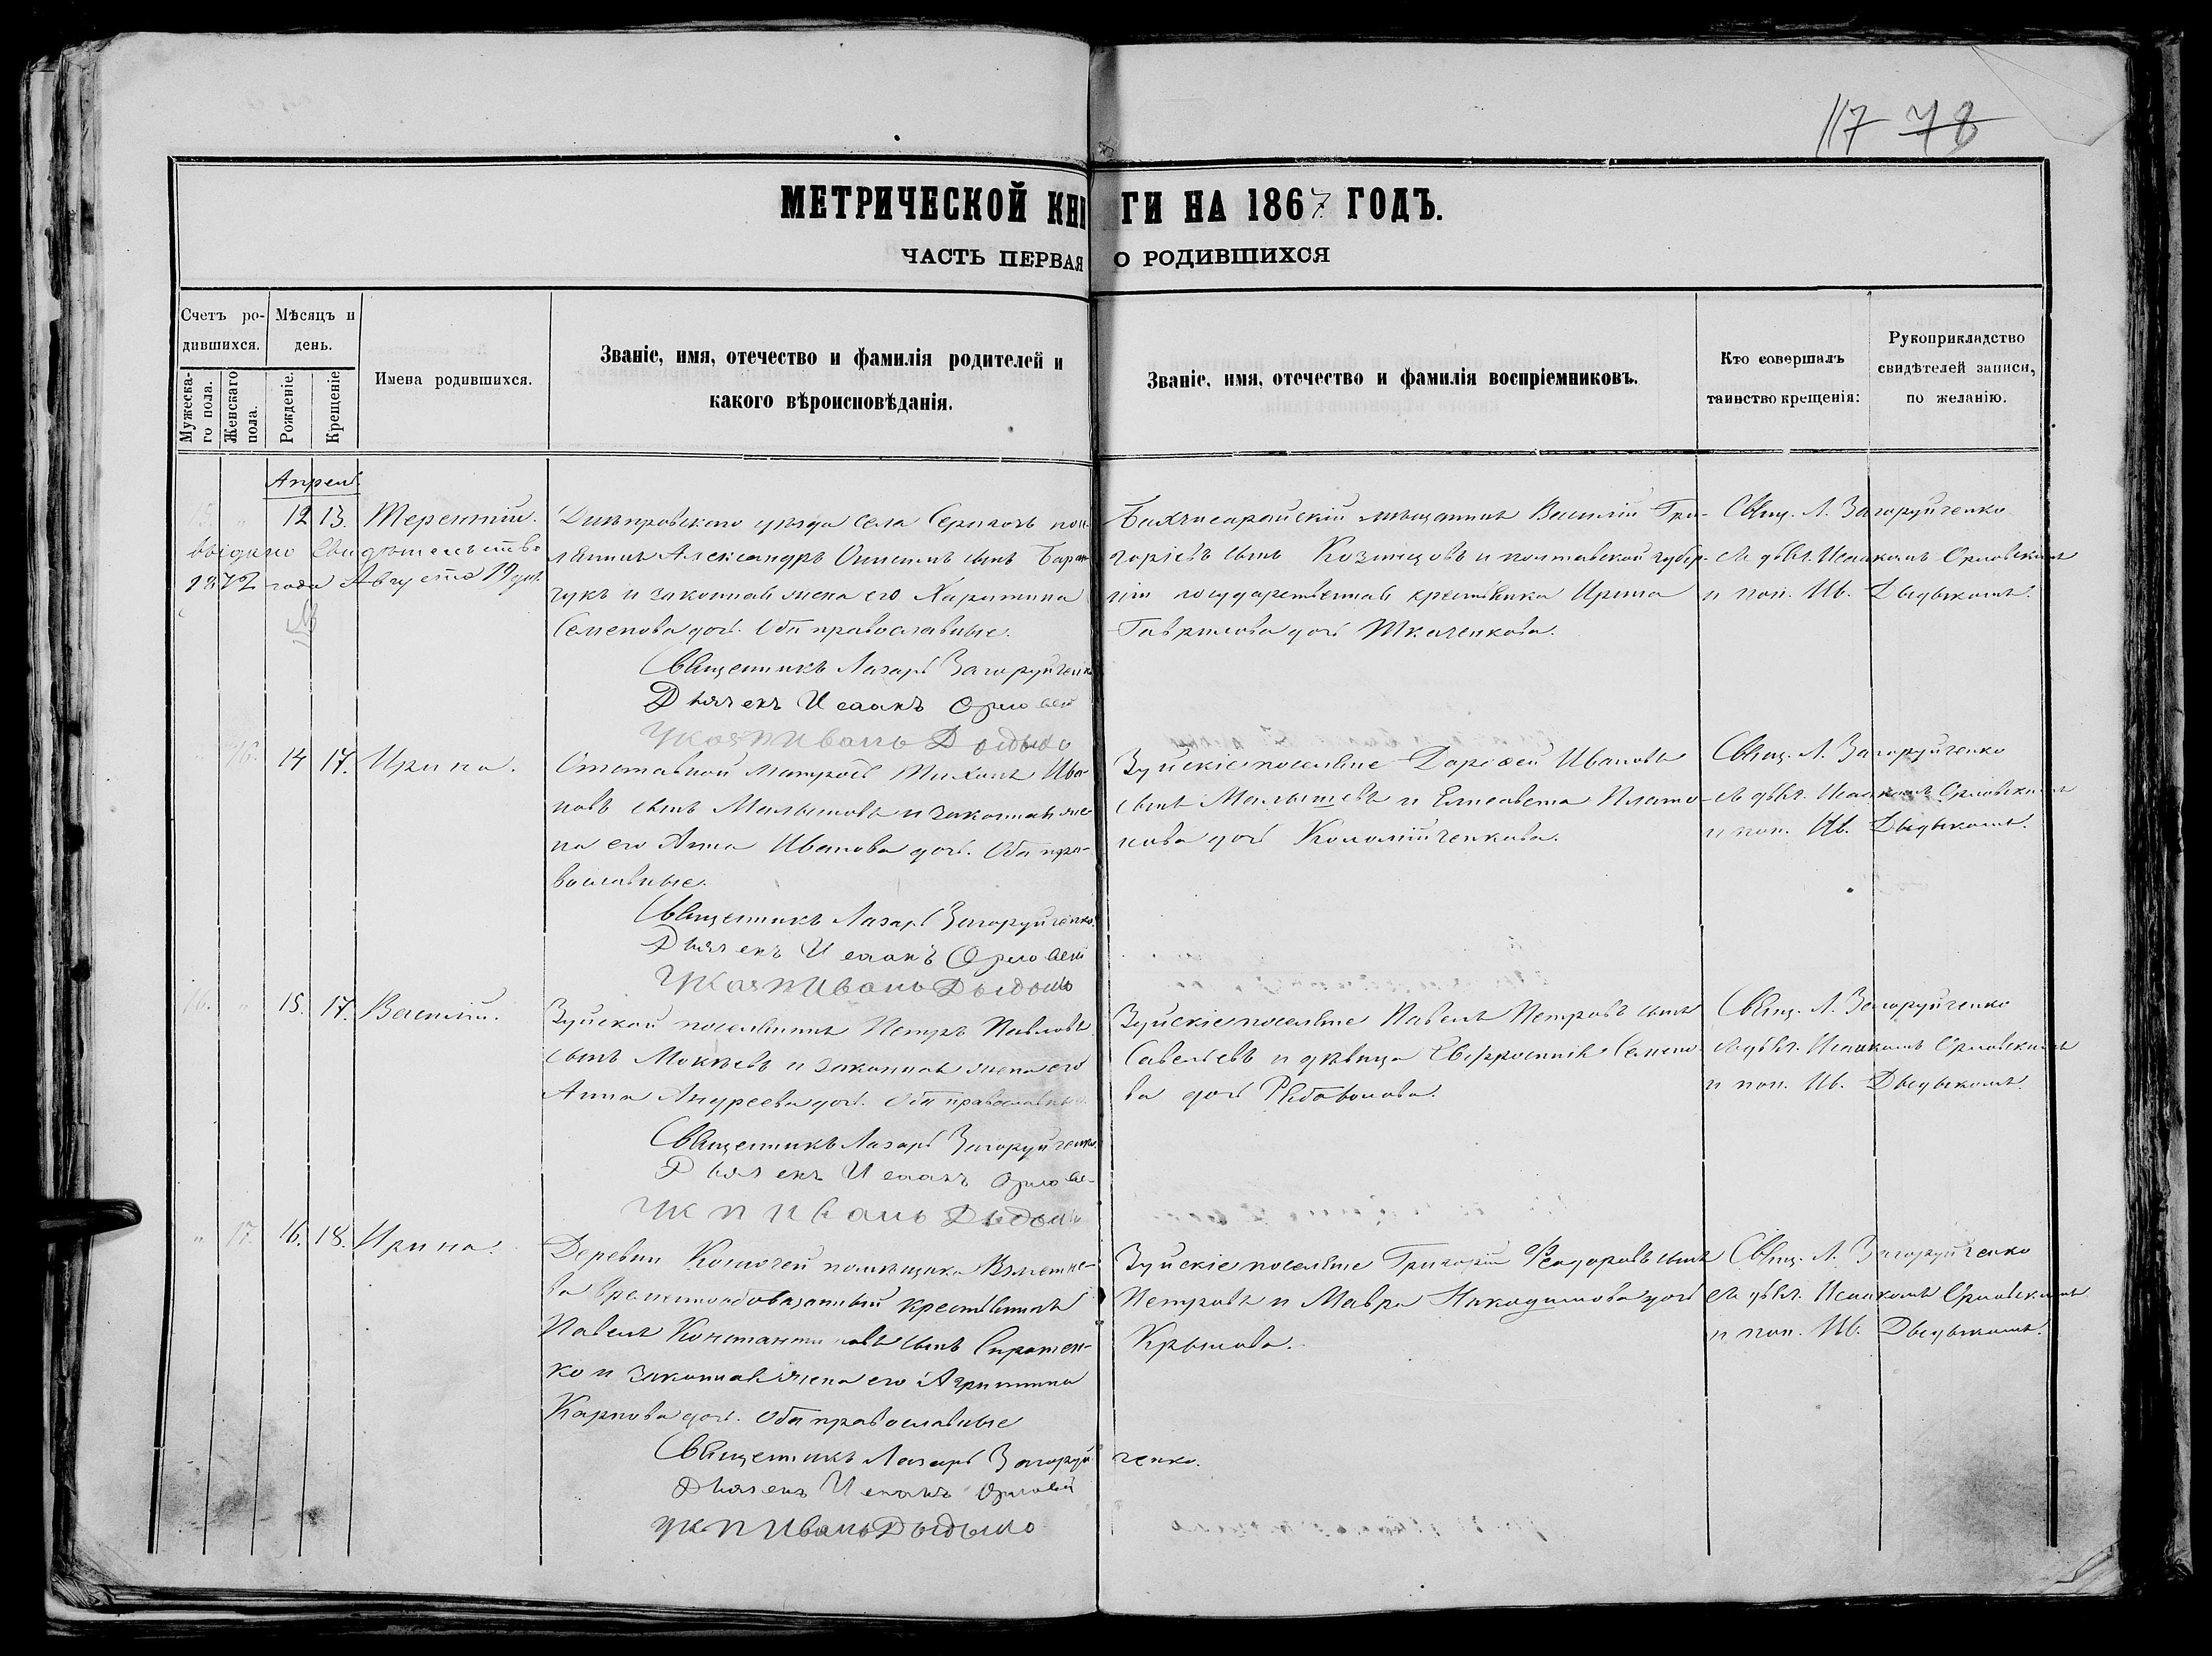 117 78
МЕТРИЧЕСКОЙ КНИГИ НА 1867 ГОДЪ.
ЧАСТЬ ПЕРВАЯ О РОДИВШИХСЯ
Счетъ ро-
дившихся.
Мѣсяцъ и
день.
Мужеска-
го пола.
Женскаго
пола.
Рожденіе.
Крещеніе
Имена родившихся.
Званіе, имя, отечество и фамилія родителей и
какого вѣроисповѣданія.
Званіе, имя, отечество и фамилія воспріемниковъ.
Кто совершалъ
таинство крещенія:
Рукоприкладство
свидѣтелей записи,
по желанію.
Апрель
15. " 12 13. Терентій.
выдано свидѣтельство
1872 года Августа 19 дня
Днѣпровскаго уѣзда села Серагозъ посе-
лянинъ Александръ сынъ
чукъ и законная жена его Харитина
Семенова дочь. Оба православные.
Священникъ Лазарь Загоруйченко
Дьячекъ Исаакъ Орловскій
Иванъ Дыдыко
Бахчисарайскій мѣщанинъ Василій Гри-
горьевъ сынъ Козинцовъ и полтавской губер-
ніи государственная крестьянка Ирина
Гаврилова дочь Ткаченкова.
Свящ. Л. Загоруйченко
съ дьяч. Исаакомъ Орловскимъ
и пон. Ив. Дыдыкомъ.
" 16. 14 17. Ирина.
Отставной матросъ Тихонъ Ива-
новъ сынъ Малышовъ и законная же-
на его Анна Иванова дочь. Оба пра-
вославные.
Священникъ Лазарь Загоруйченко.
Дьячекъ Исаакъ Орловскій
Иванъ Дыдыко
Зуйскіе поселяне Дорофей Ивановъ
сынъ Малышевъ и Елисавета Плато-
нова дочь Коломійченкова.
Свящ. Л. Загоруйченко
съ дьяч. Исаакомъ Орловскимъ
и пон. Ив. Дыдыкомъ.
16. " 15. 17. Василій.
Зуйской поселянинъ Петръ Павловъ
сынъ Мокѣевъ и законная жена его
Анна Андреева дочь. Оба православные.
Священникъ Лазарь Загоруйченко.
Дьячекъ Исаакъ Орловс-
Иванъ Дыдыко
Зуйскіе поселяне Павелъ Петровъ сынъ
Савельевъ и дѣвица Евфросинія Семено-
ва дочь Рябоволова.
Свящ. Л. Загоруйченко
съ дьяч. Исаакомъ Орловскимъ
и пон. Ив. Дыдыкомъ.
" 17. 16. 18. Ирина.
Деревни помѣщика
ва временнообязанный крестьянинъ
Павелъ Константиновъ сынъ Сиротен-
ко и законная жена его Агрипина
Карпова дочь. Оба православные
Священникъ Лазарь Загоруйченко.
Дьячекъ Исаакъ Орловскій
Иванъ Дыдыко
Зуйскіе поселяне Григорій Феодоровъ сынъ
Петровъ и Мавра Никодимова дочь
Крылова.
Свящ. Л. Загоруйченко
съ дьяч. Исаакомъ Орловскимъ
и пон. Ив. Дыдыкомъ.